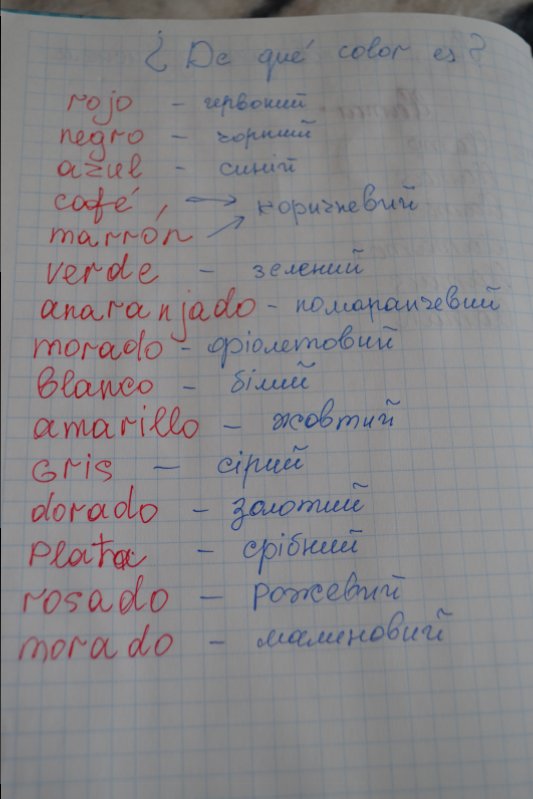 ¿ De qué color es ?
rojo – червоний
negro – чорний
azul – синій
café, → коричневий
marrón
verde – зелений
anaranjado – помаранчевий
morado – фіолетовий
Blanco – білий
amarillo – жовтий
Gris – сірий
dorado – золотий
Plata – срібний
rosado – рожевий
morado – малиновий